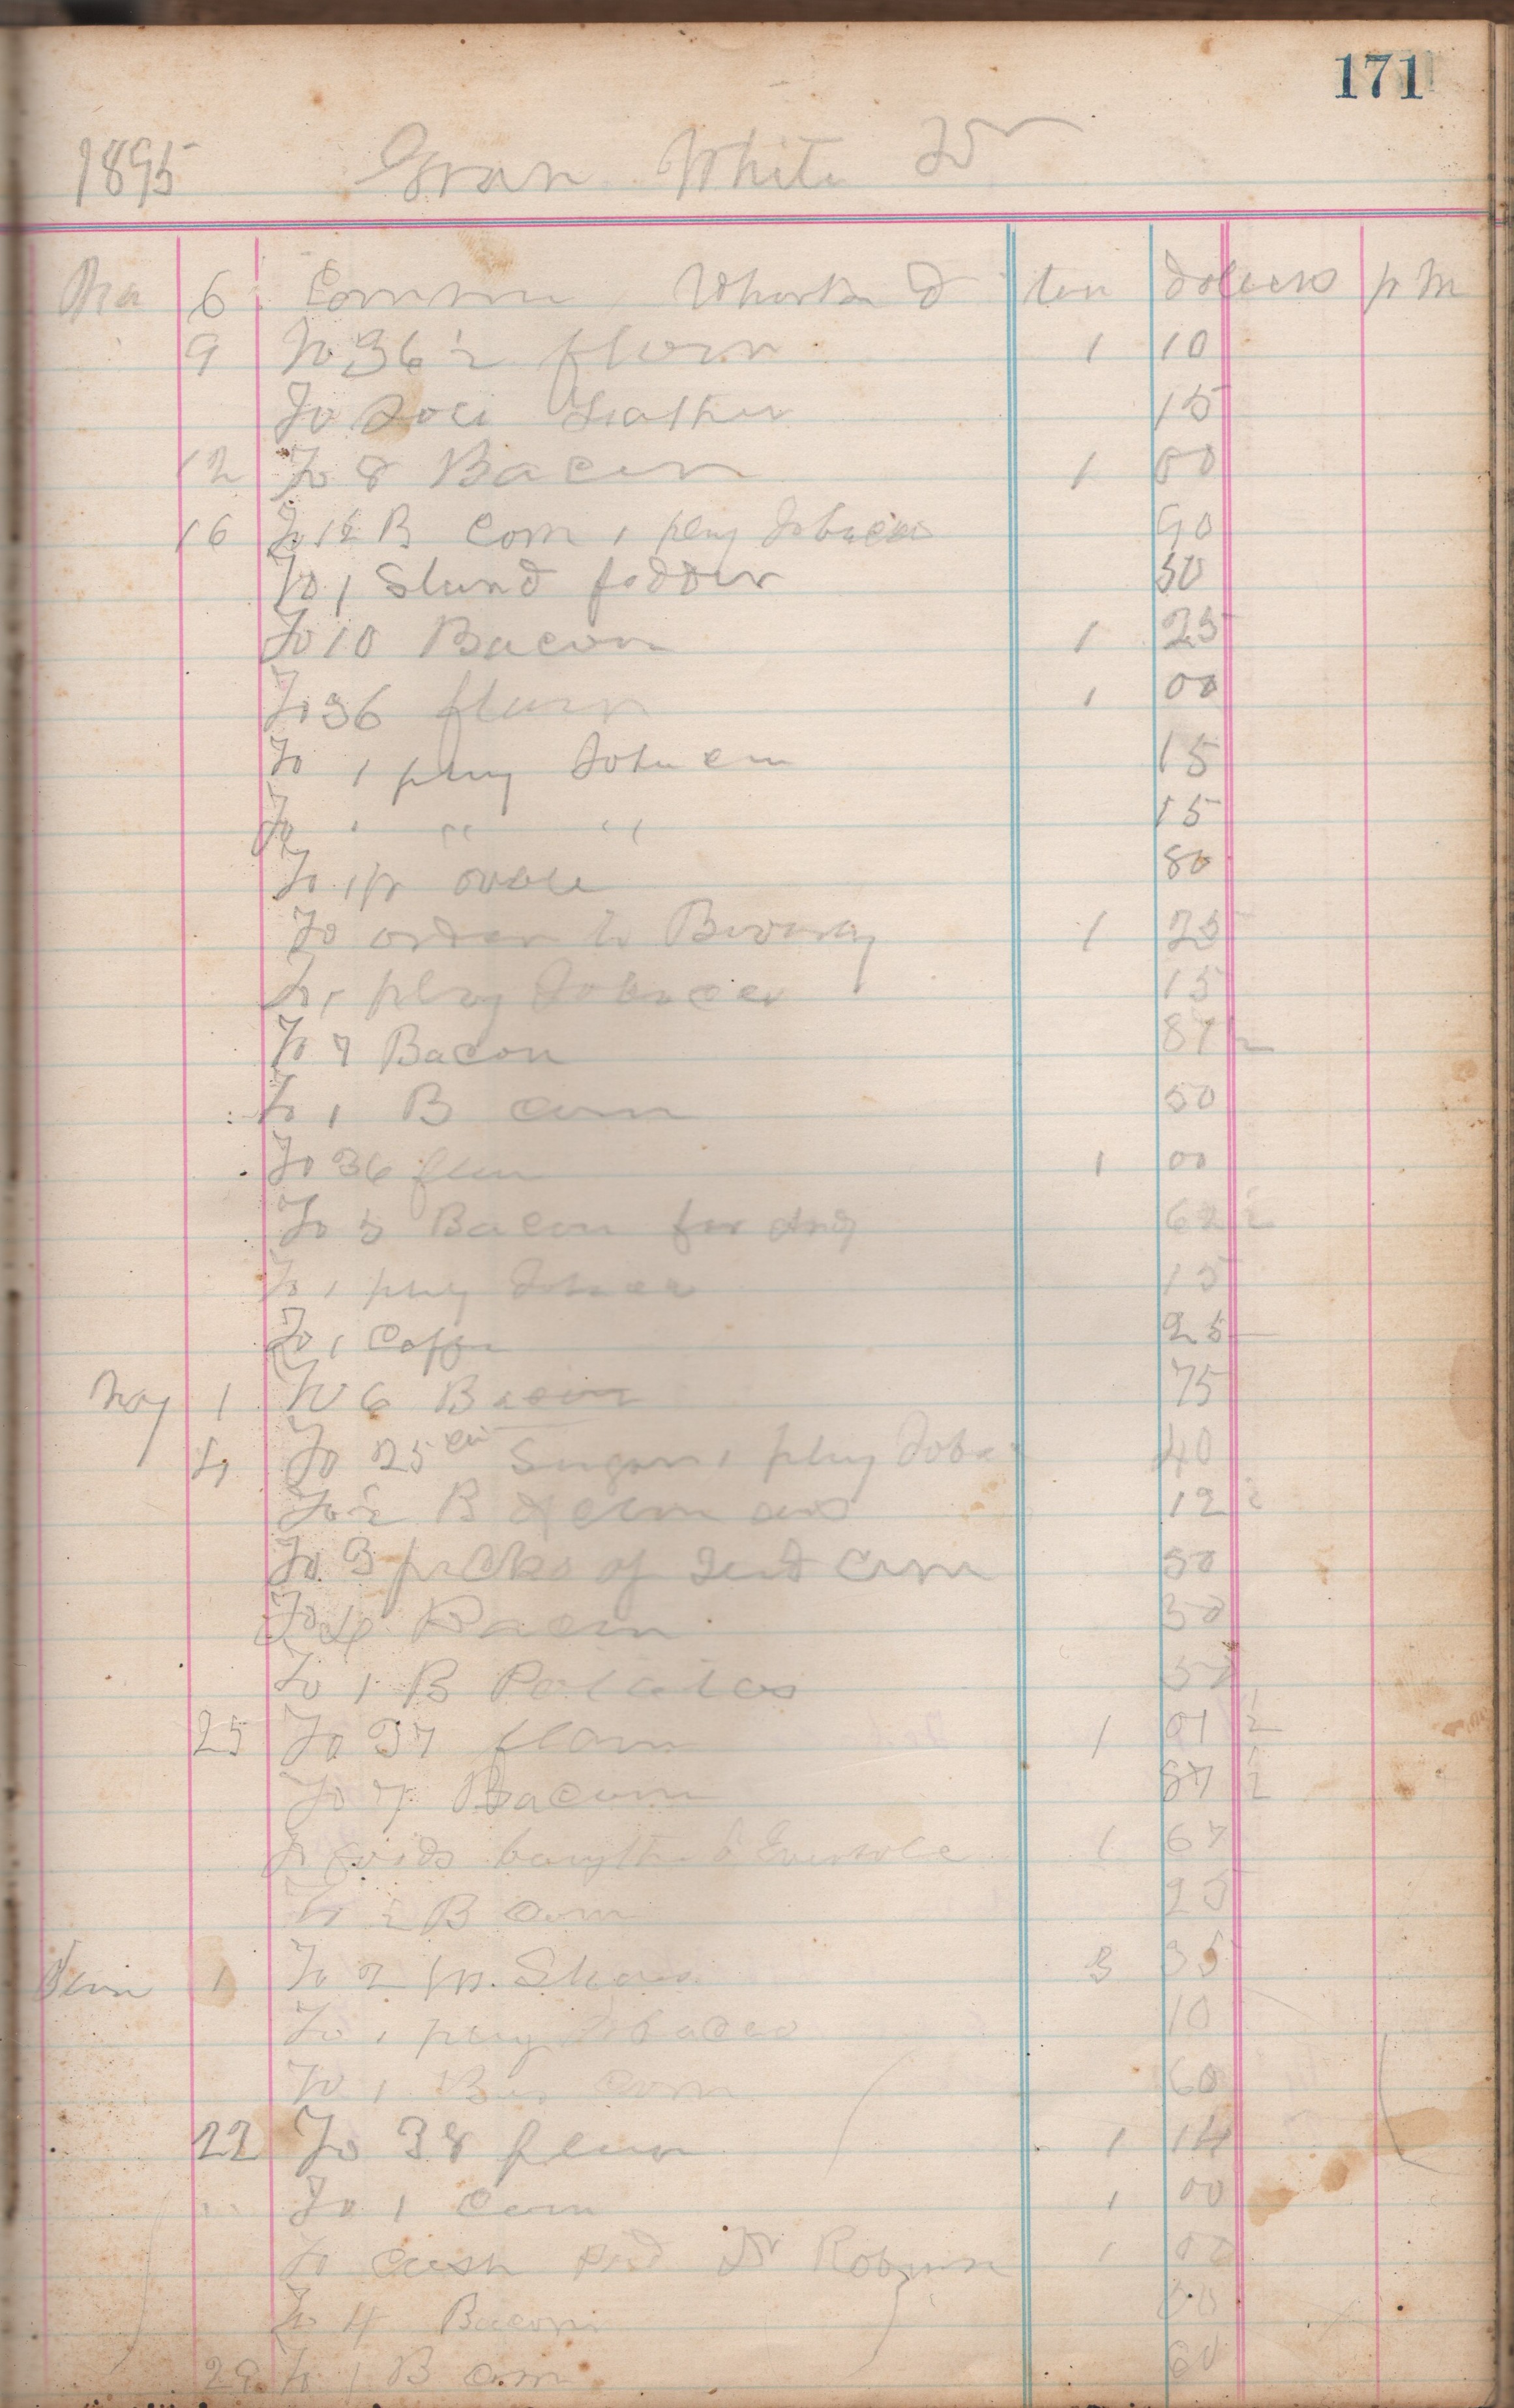 171
1895 Evan White Dr
6 Commen Whork d ten dolers p M
9 To 36 ½ flour 1 10
To Sole Leather 15
12 To 8 Bacon 1 00
16 To 1½ B Corn 1 plug Tobacco 90
To 1 Stund fodder 50
To 10 Bacon 1 25
To 36 flour 1 00
To 1 plug Tobacco 15
To " " " 15
To 1 pr 80
To order to 1 25
To 1 plug Tobacco 15
To 7 Bacon 87 ½
To 1 B corn 50
To 36 flour 1 00
To 5 Bacon for 62 ½
To 1 plug Tobacco 15
To 1 Coffe 25
May 1 To 6 Bacon 75
4 To 25 cts Sugar 1 plug Toba 40
To ½ B 12 ½
To 3 pecks of Seed corn 50
To 4 Bacon 50
To 1 B Potatoes 50
25 To 37 flour 1 01 ½
To 7 Bacon 87 ½
To goids 1 67
To ½ B corn 25
1 To 2 pr. Shoes 3 35
To 1 plug Tobacco 10
To 1 Bus corn 60
22 To 38 flour 1 14
" To 1 Corn 1 00
To cash Paid Dr 1 00
To 4 Bacon 50
29 To 1 B corn 60